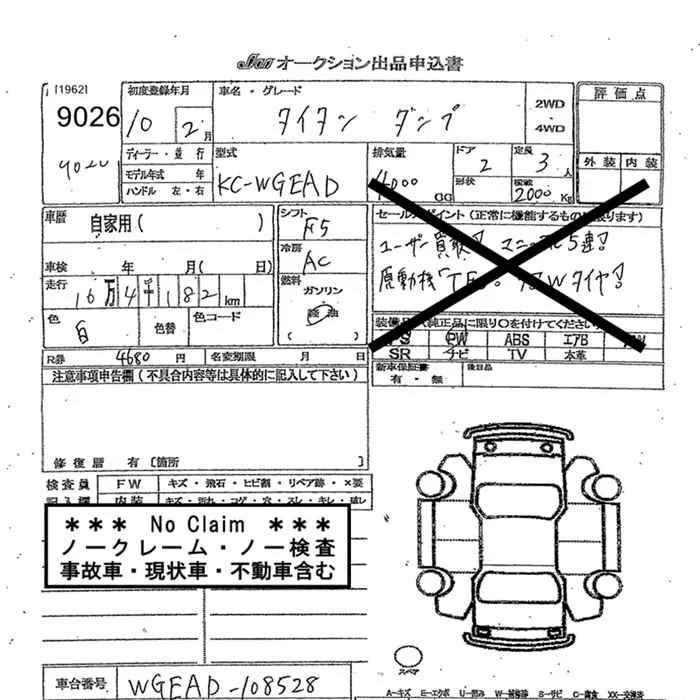 JAA オークション出品申込書
[1962]
9026
初度登録年月
10 2 月
車名・グレード
タイタン ダンプ
2WD
4WD
評価点
外装 内装
ディーラー・並行
モデル年式 年
ハンドル 左・右
型式
KC-WGEAD
排気量
4000
ドア
2
形状
定員
3 人
積載
2000 Kg
車歴
自家用 ( )
シフト
F5
冷房
AC
燃料
ガソリン
軽油
車検 年 月( 日)
走行
16万4千182 km
色
白
色替
色コード
セールスポイント(正常に機能するものに限ります)
ユーザー買取! マニュアル5速!
原動機「TF」。
Wタイヤ!
装備品(純正品に限り○を付けてください)
PS PW ABS エアB
SR ナビ TV 本革
新車保証書
有・無
後日品
R券 4680 円
名変期限 月 日
注意事項申告欄(不具合内容等は具体的に記入して下さい)
修復歴 有 〔箇所 〕
検査員
記入欄
FW キズ・飛石・ヒビ割・リペア跡・×要
内装 キズ・汚れ・コゲ・穴・スレ・キレ・破レ
*** No Claim ***
ノークレーム・ノー検査
事故車・現状車・不動車含む
スペア
車台番号 WGEAD-108528
A=キズ E=エクボ U=凹み W=補修跡 S=サビ C=腐食 XX=交換済